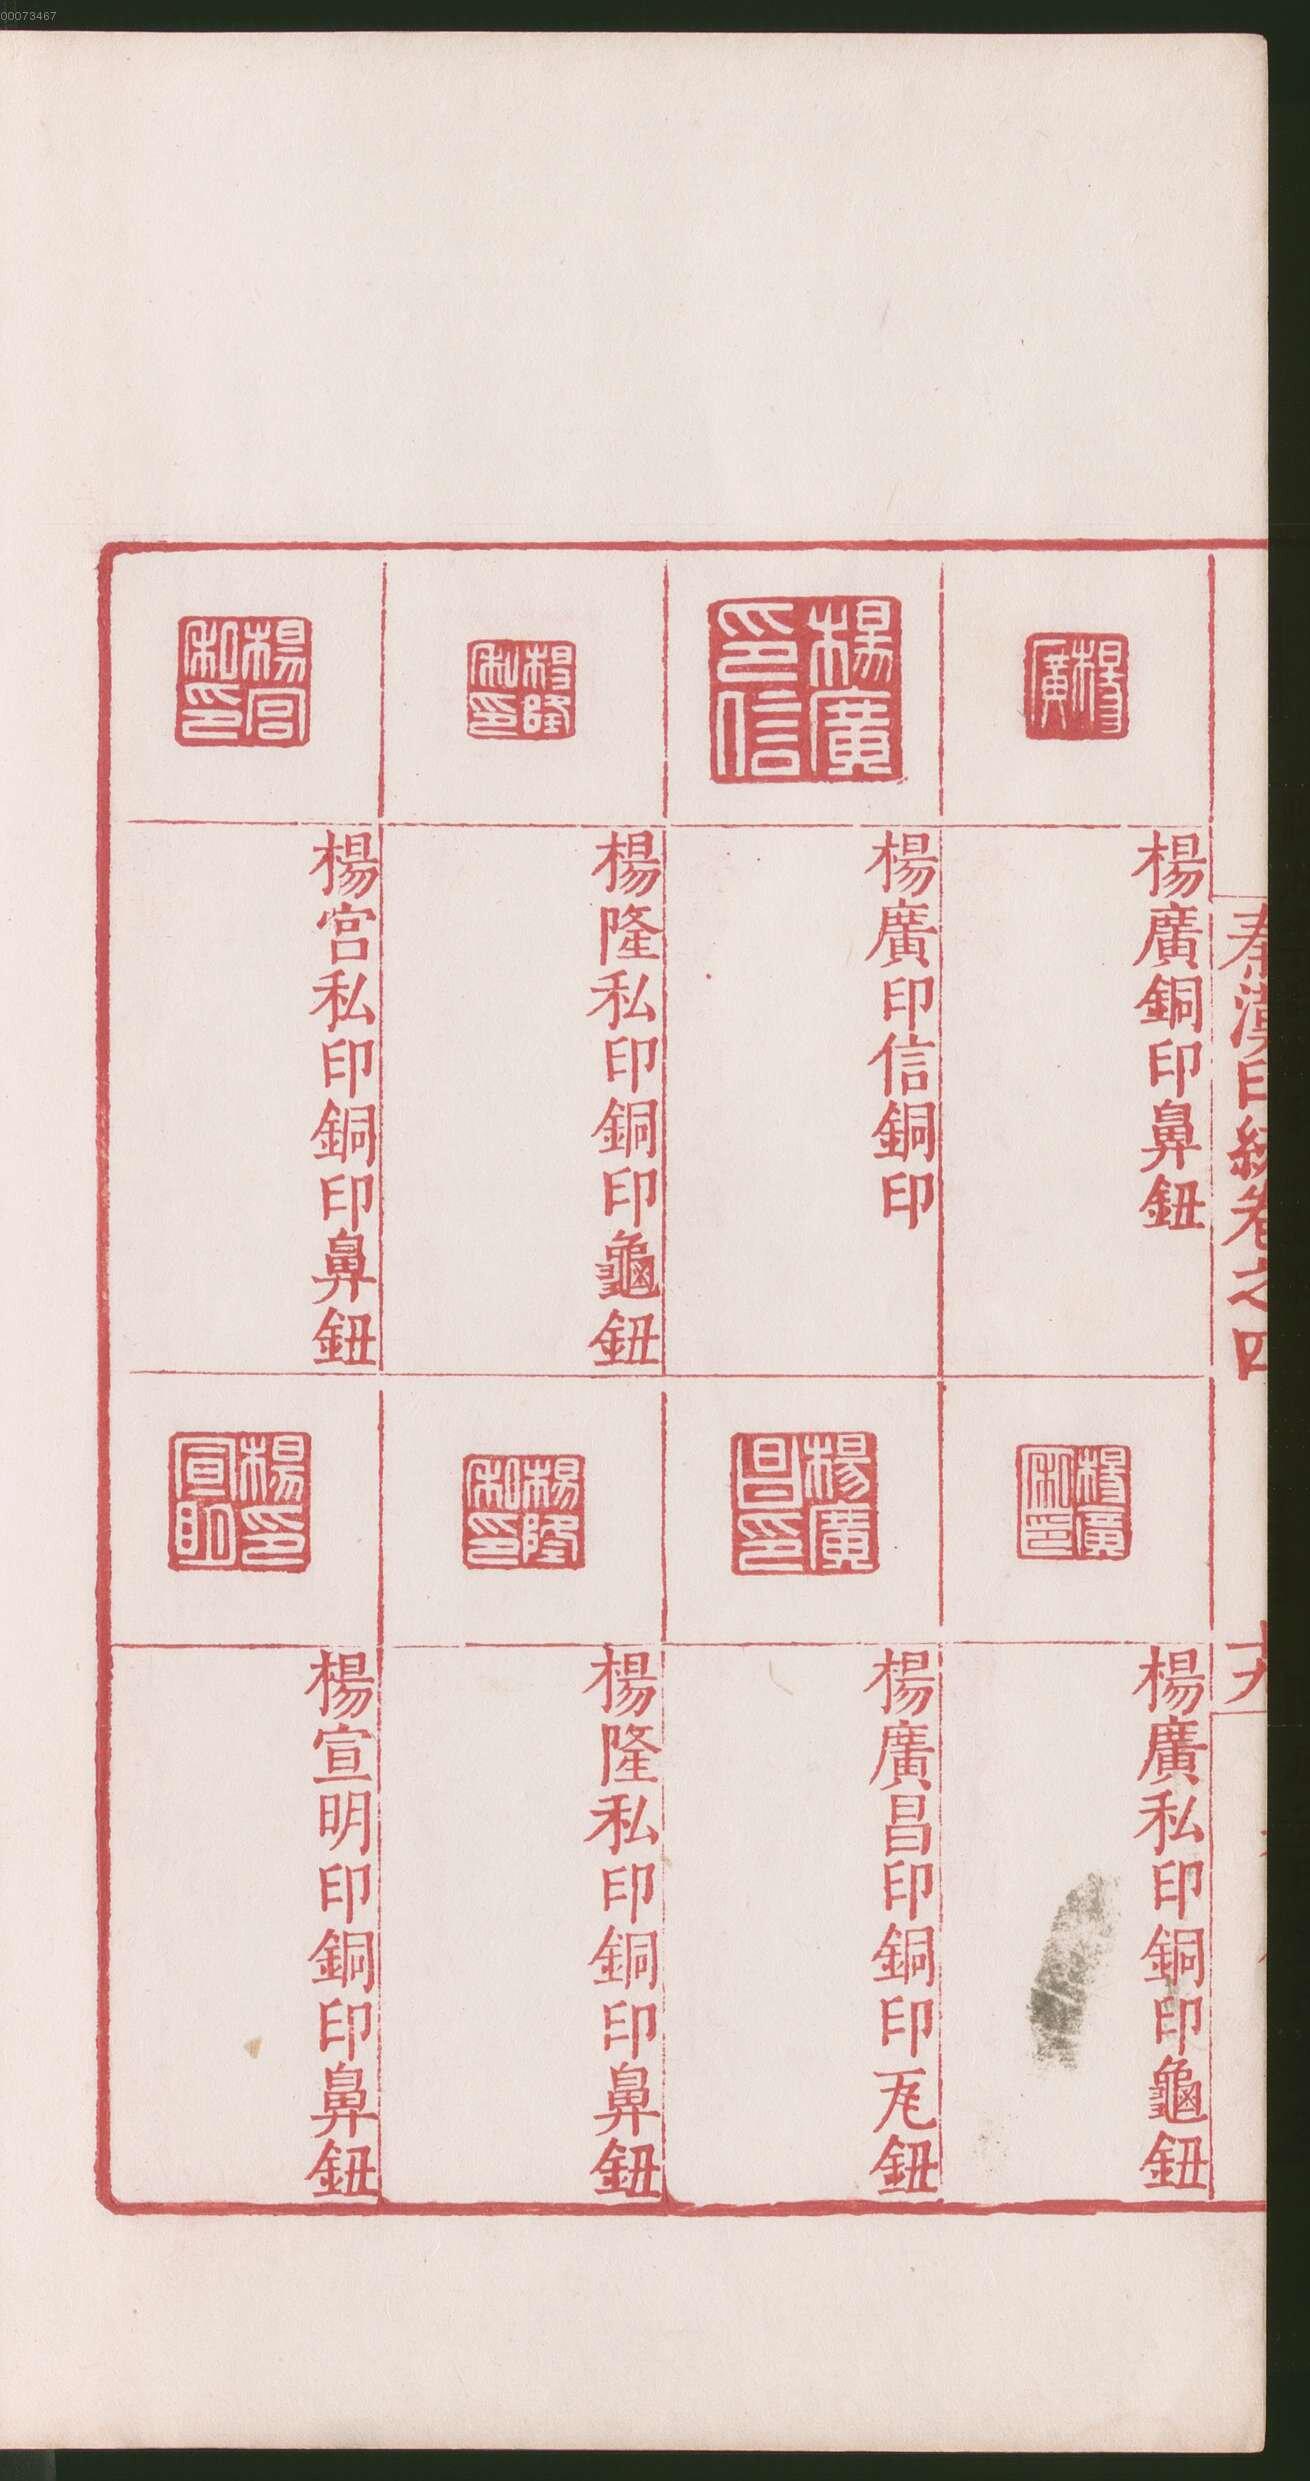 00073467
秦漢印統卷之四
楊廣
楊廣銅印鼻鈕
楊廣私印
楊廣私印銅印龜鈕
楊廣印信
楊廣印信銅印
楊廣昌印
楊廣昌印銅印瓦鈕
楊隆私印
楊隆私印銅印龜鈕
楊隆私印
楊隆私印銅印鼻鈕
楊宮私印
楊宮私印銅印鼻鈕
楊印宣明
楊宣明印銅印鼻鈕